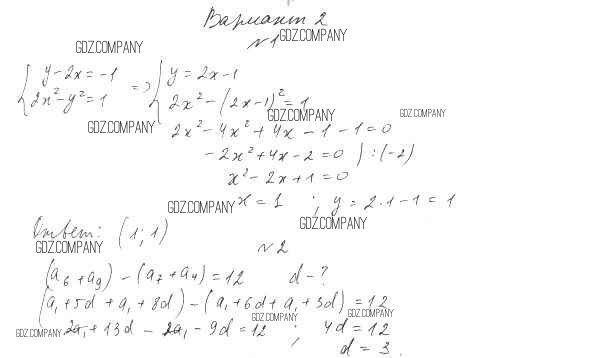 Вариант 2
N1 GDZ.COMPANY
GDZ.COMPANY
{ y-2x=-1 => { y=2x-1
2x²-y²=1 2x²-(2x-1)²=1
GDZ.COMPANY
GDZ.COMPANY 2x²-4x²+4x-1-1=0 GDZ.COMPANY
-2x²+4x-2=0 ) :(-2)
x²-2x+1=0
GDZ.COMPANY x=1 ; y=2·1-1=1
Ответ: (1;1) GDZ.COMPANY
GDZ.COMPANY N2
(a₆+a₉)-(a₇+a₄)=12 d-?
(a₁+5d+a₁+8d)-(a₁+6d+a₁+3d)=12
GDZ.COMPANY GDZ.COMPANY
GDZ.COMPANY 2a₁+13d-2a₁-9d=12 ; 4d=12
d=3.